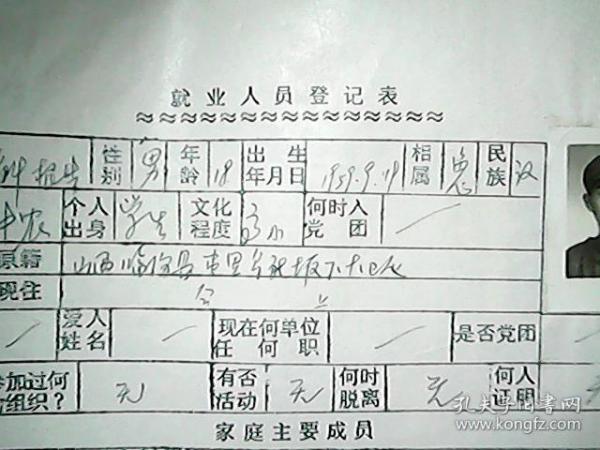 就业人员登记表
性别 男 年龄 18 出生年月日 1959.9.19 相属 民族 汉
农 个人出身 学生 文化程度 高小 何时入党团 —
原籍 山西临汾县
现住 仝 上
— 爱人姓名 — 现在何单位任何职 — 是否党团
参加过何组织? 无 有否活动 无 何时脱离 无 何人证明
家庭主要成员
孔夫子旧书网
www.kongfz.com